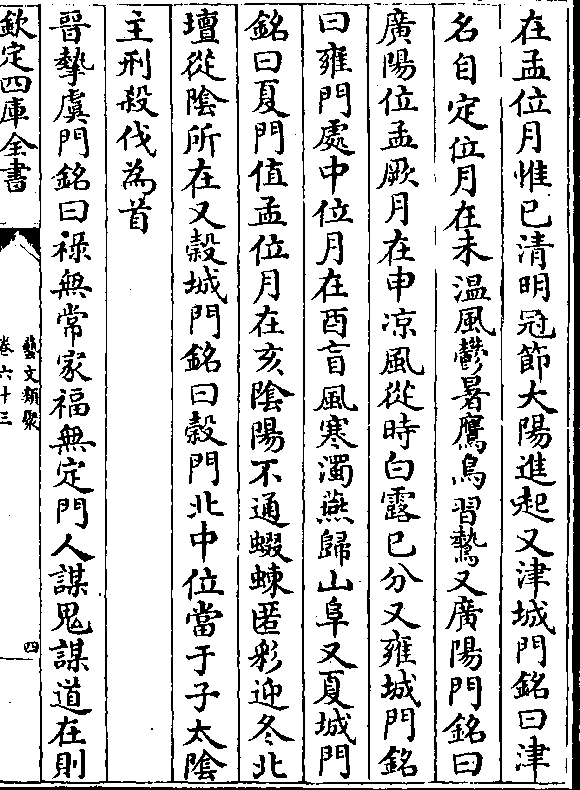 在孟位月惟巳清明冠節大陽進起又津城門銘曰津
名自定位月在未温風鬱暑鷹鳥習鷙又廣陽門銘曰
廣陽位孟厥月在申凉風從時白露已分又雍城門銘
曰雍門處中位月在酉盲風寒濁燕歸山阜又夏城門
銘曰夏門值孟位月在亥陰陽不通蝃蝀匿彩迎冬北
壇從陰所在又榖城門銘曰榖門北中位當于子太陰
主刑殺伐為首
晉摯虞門銘曰祿無常家福無定門人謀鬼謀道在則
欽定四庫全書
藝文類聚
卷六十三
四